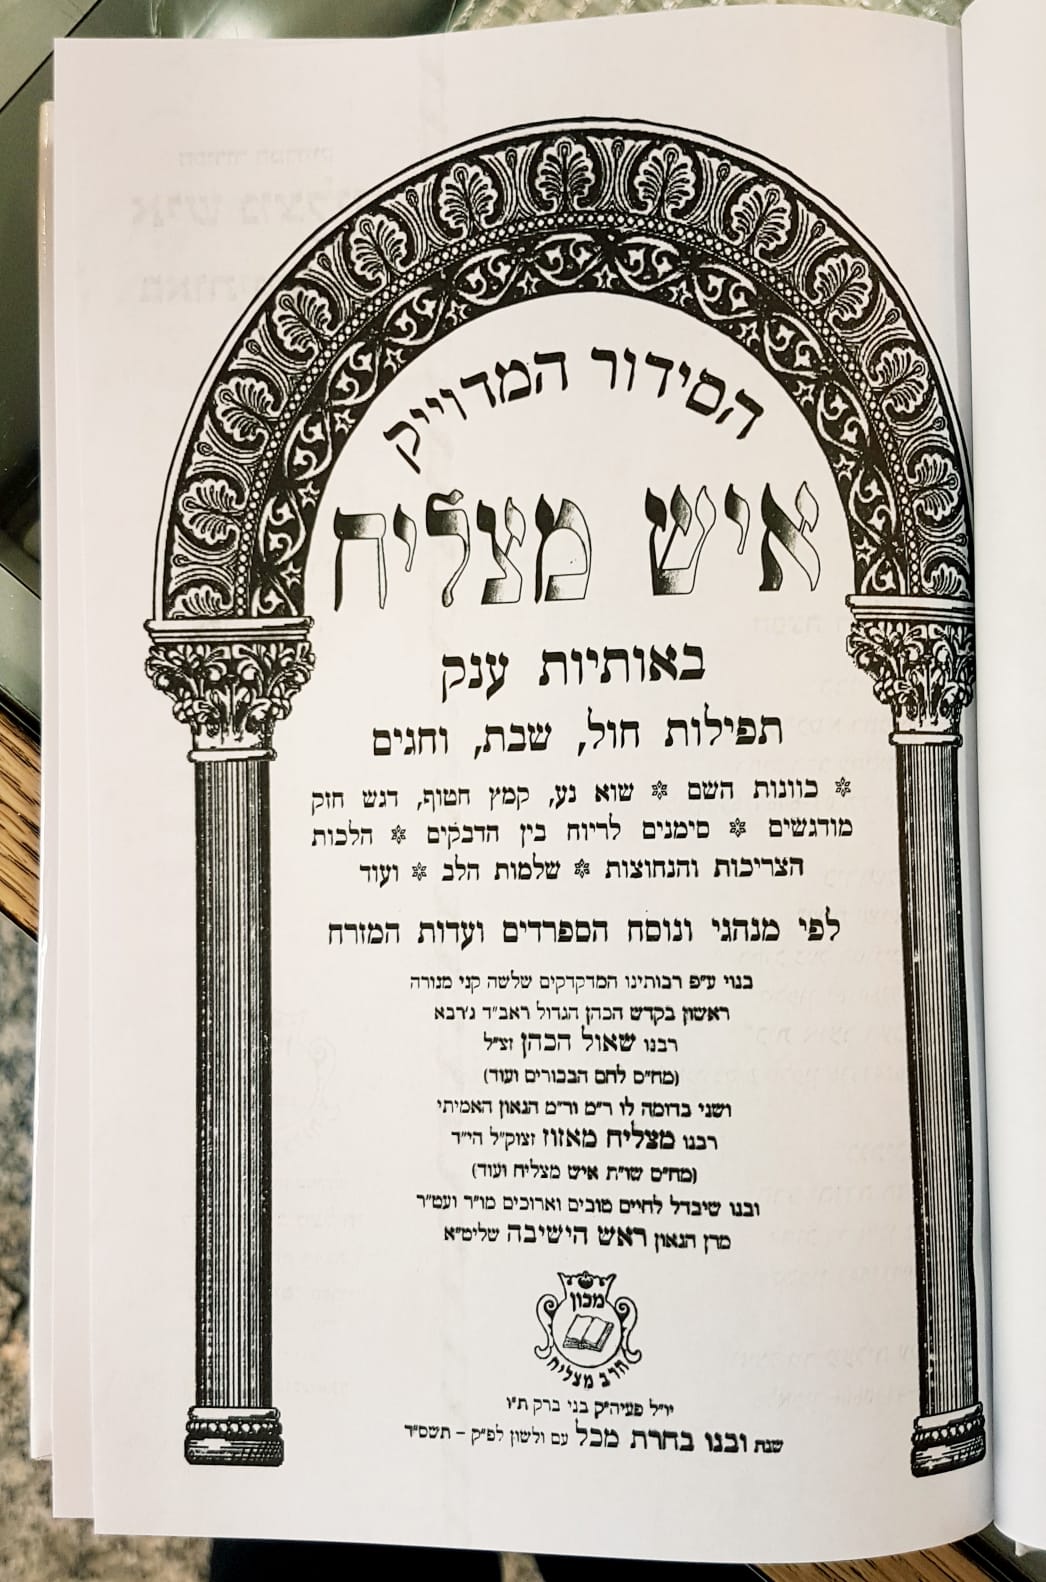 הסידור המדוייק
איש מצליח
באותיות ענק
תפילות חול, שבת, וחגים
כוונות השם שוא נע, קמץ חטוף, דגש חזק
מודגשים סימנים לריוח בין הדבקים הלכות
הצריכות והנחוצות שלמות הלב ועוד
לפי מנהגי ונוסח הספרדים ועדות המזרח
בנוי ע"פ רבותינו המדקדקים שלשה קני מנורה
ראשון בקדש הכהן הגדול ראב"ד ג'רבא
רבנו שאול הכהן זצ"ל
(מח"ס לחם הבכורים ועוד)
ושני בדומה לו ר"מ ור"מ הגאון האמיתי
רבנו מצליח מאזוז זצוק"ל הי"ד
(מח"ס שו"ת איש מצליח ועוד)
ובנו שיבדל לחיים טובים וארוכים מו"ר ועט"ר
מרן הגאון ראש הישיבה שליט"א
מכון
הרב מצליח
יו"ל פעיה"ק בני ברק ת"ו
שנת ובנו בחרת מכל עם ולשון לפ"ק - תשס"ד